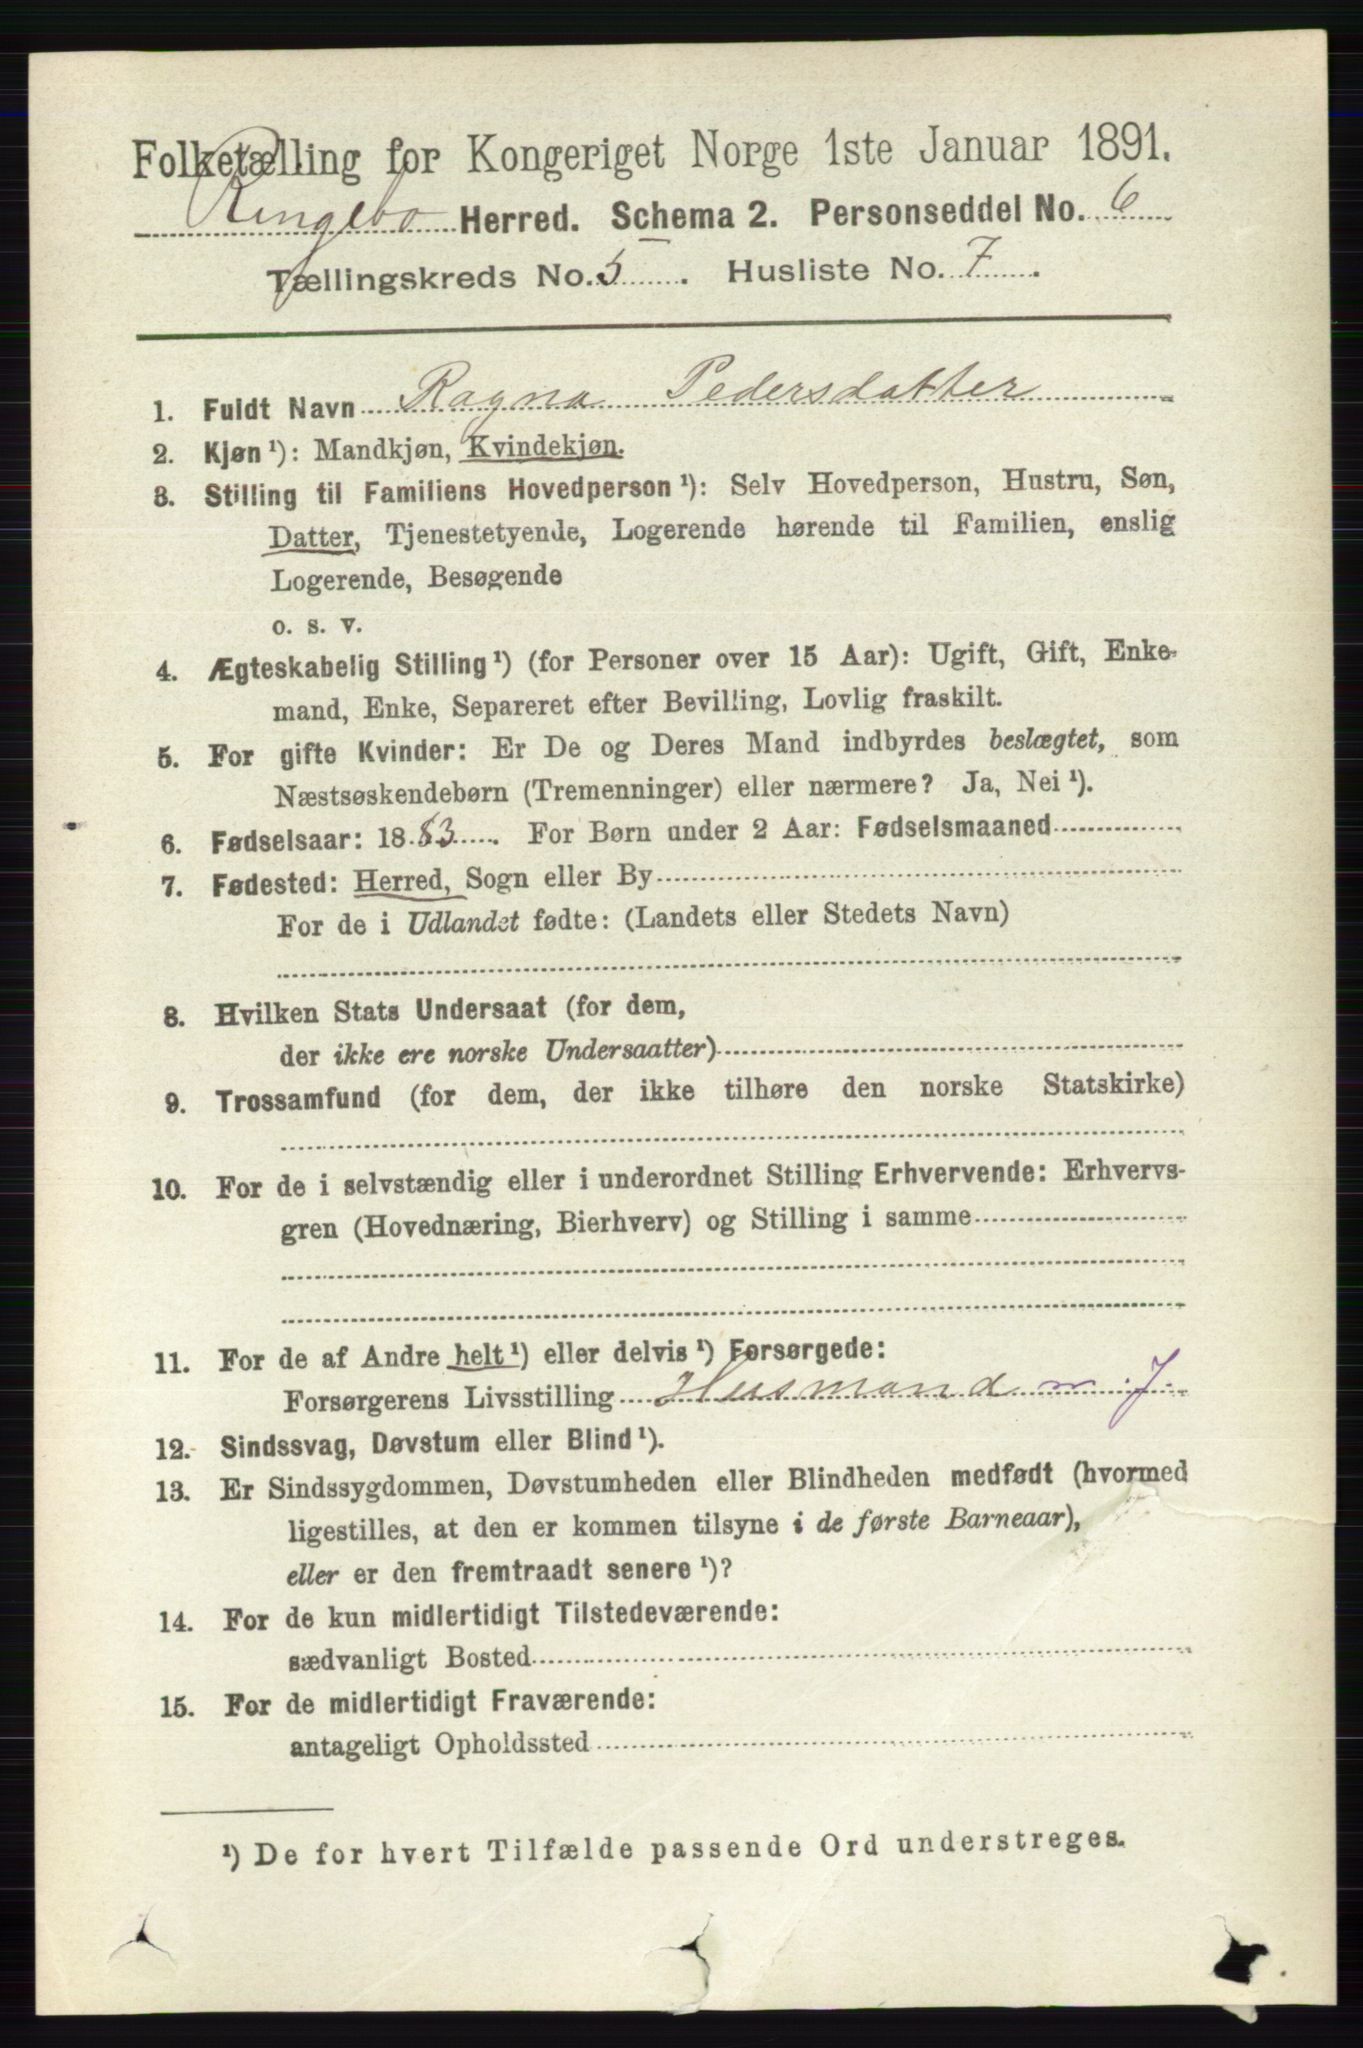 Folketælling for Kongeriget Norge 1ste Januar 1891.
Ringebo Herred. Schema 2. Personseddel No. 6
Tællingskreds No. 5. Husliste No. 7.
1. Fuldt Navn Ragna Pedersdatter
2. Kjøn¹): Mandkjøn, Kvindekjøn.
3. Stilling til Familiens Hovedperson¹): Selv Hovedperson, Hustru, Søn,
Datter, Tjenestetyende, Logerende hørende til Familien, enslig
Logerende, Besøgende
o. s. v.
4. Ægteskabelig Stilling¹) (for Personer over 15 Aar): Ugift, Gift, Enke-
mand, Enke, Separeret efter Bevilling, Lovlig fraskilt.
5. For gifte Kvinder: Er De og Deres Mand indbyrdes beslægtet, som
Næstsøskendebørn (Tremenninger) eller nærmere? Ja, Nei¹).
6. Fødselsaar: 1883. For Børn under 2 Aar: Fødselsmaaned
7. Fødested: Herred, Sogn eller By
For de i Udlandet fødte: (Landets eller Stedets Navn)
8. Hvilken Stats Undersaat (for dem,
der ikke ere norske Undersaatter)
9. Trossamfund (for dem, der ikke tilhøre den norske Statskirke)
10. For de i selvstændig eller i underordnet Stilling Erhvervende: Erhvervs-
gren (Hovednæring, Bierhverv) og Stilling i samme
11. For de af Andre helt¹) eller delvis¹) Forsørgede:
Forsørgerens Livsstilling Husmand m. J.
12. Sindssvag, Døvstum eller Blind¹).
13. Er Sindssygdommen, Døvstumheden eller Blindheden medfødt (hvormed
ligestilles, at den er kommen tilsyne i de første Barneaar),
eller er den fremtraadt senere¹)?
14. For de kun midlertidigt Tilstedeværende:
sædvanligt Bosted
15. For de midlertidigt Fraværende:
antageligt Opholdssted
¹) De for hvert Tilfælde passende Ord understreges.